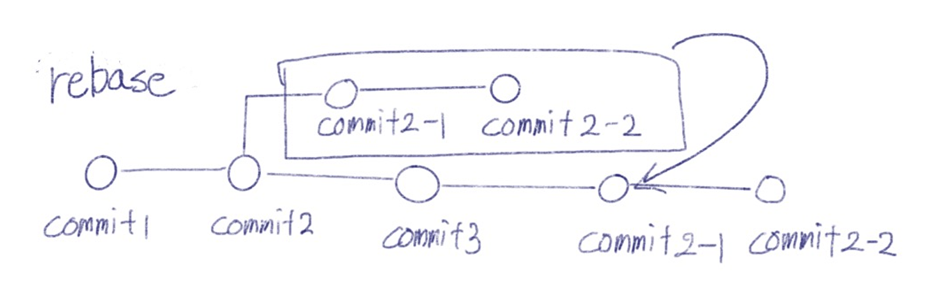 rebase
commit2-1 commit2-2
commit1 commit2 commit3 commit2-1 commit2-2